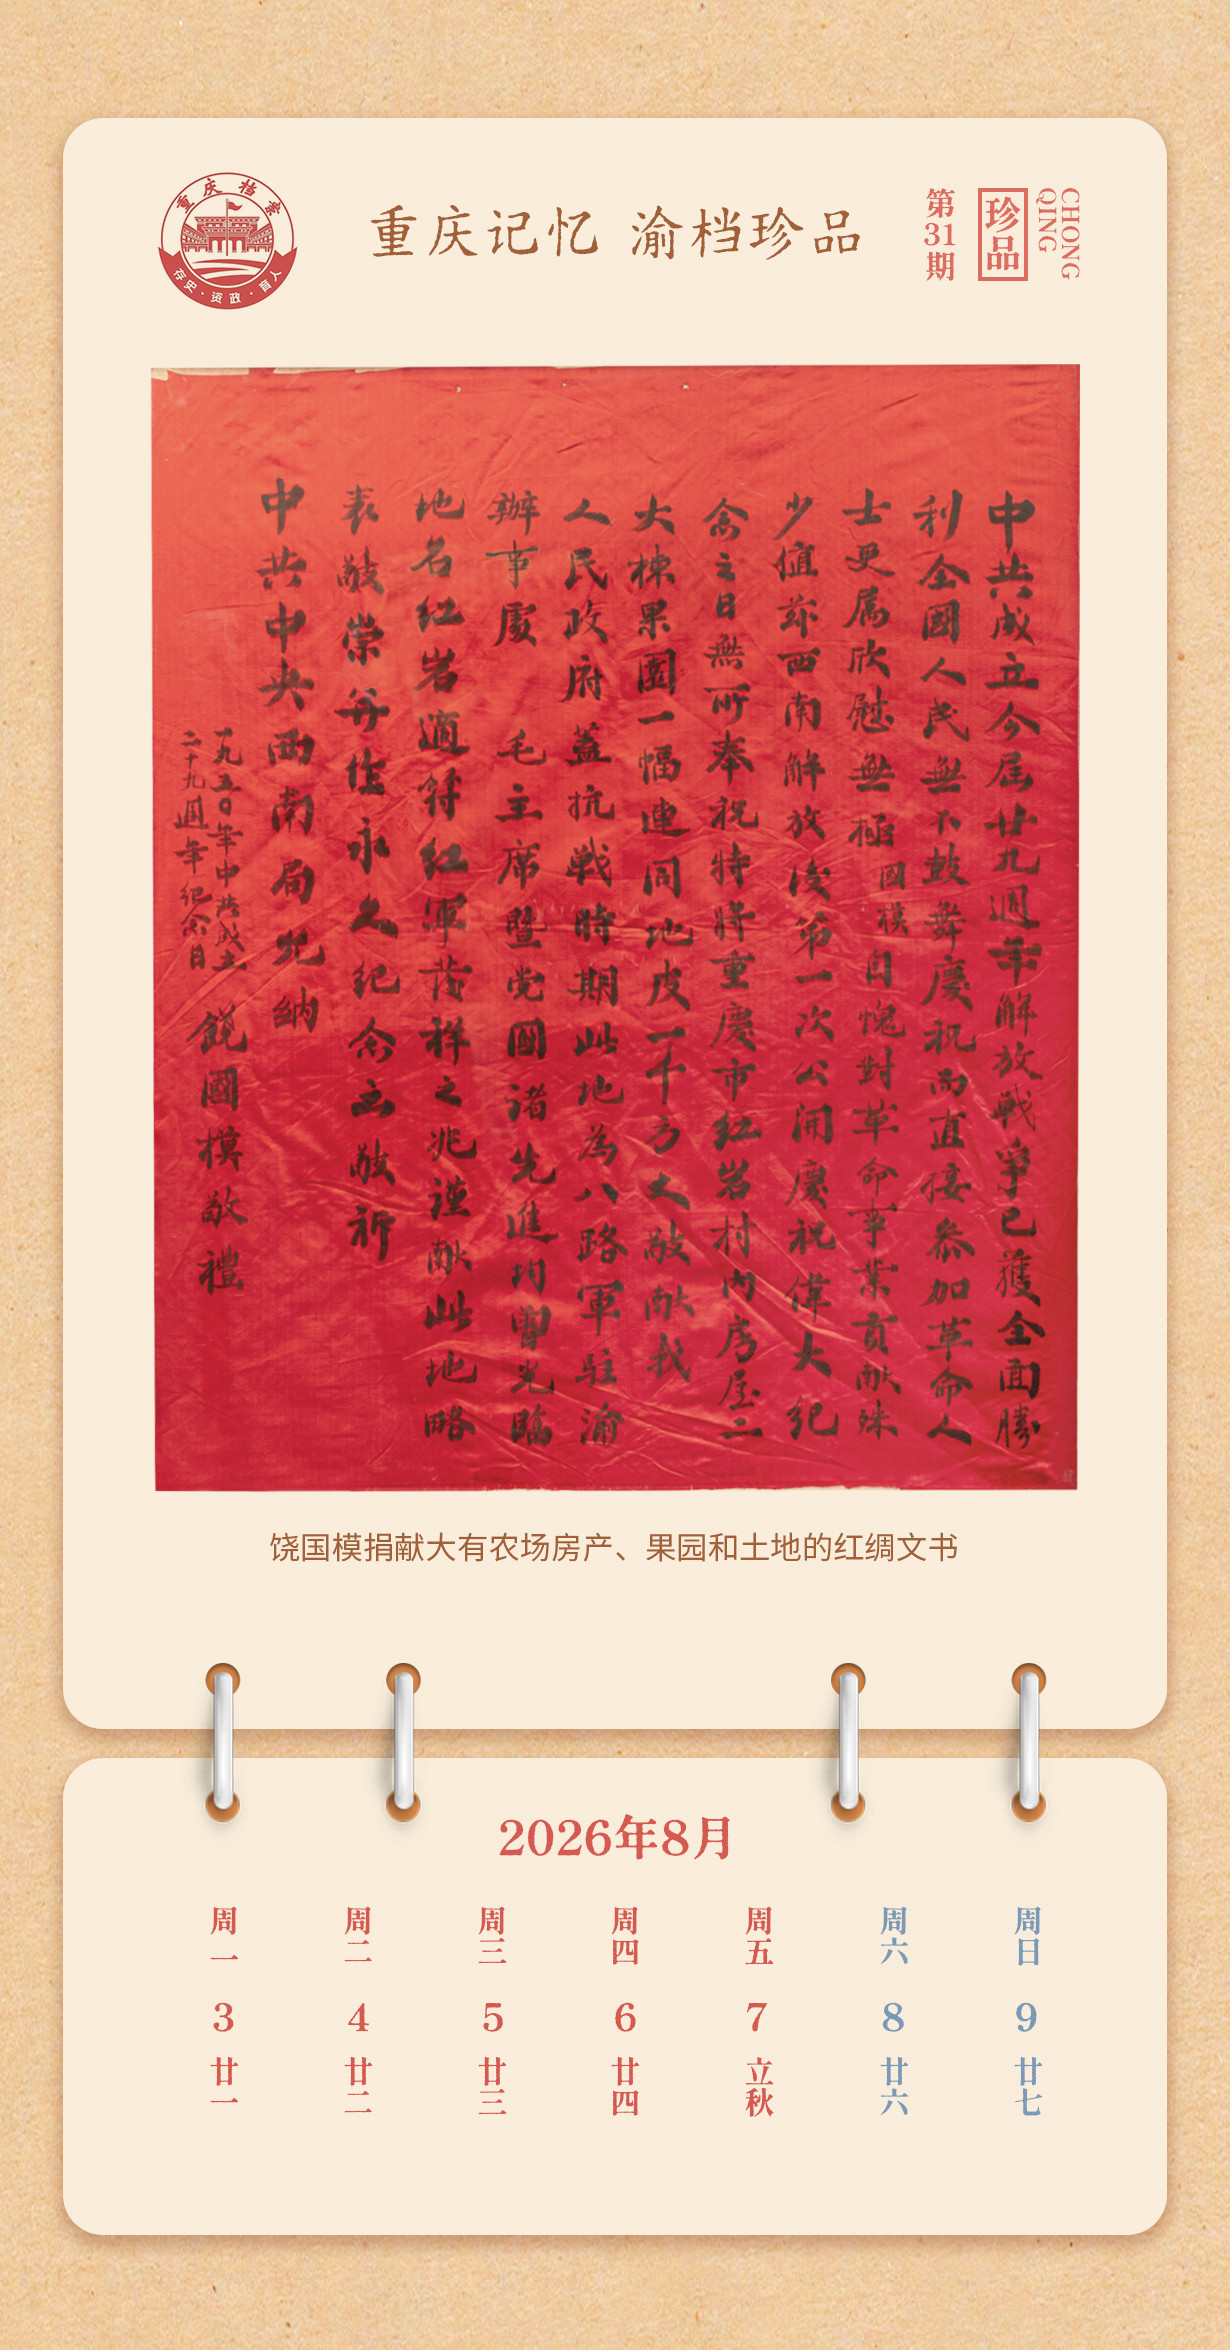 重庆档案
存史·资政·育人
重庆记忆 渝档珍品
第31期
珍品
CHONG
QING
中共成立今屆廿九週年解放戰爭已獲全面勝
利全國人民無不鼓舞慶祝而直接參加革命人
士更属欣慰無極國模自愧對革命事業貢献殊
少值茲西南解放後第一次公開慶祝偉大紀
念之日無所奉祝特將重慶市紅岩村內房屋二
大棟果園一幅連同地皮一千方丈敬献我
人民政府蓋抗戰時期此地為八路軍駐渝
辦事處 毛主席暨党國諸先進均曾光臨
地名紅岩適符紅軍發祥之兆謹献此地略
表敬崇并作永久紀念云敬祈
中共中央西南局允納
一九五〇年中共成立
二十九週年纪念日
饒國模敬禮
饶国模捐献大有农场房产、果园和土地的红绸文书
2026年8月
周一 周二 周三 周四 周五 周六 周日
3 4 5 6 7 8 9
廿一 廿二 廿三 廿四 立秋 廿六 廿七